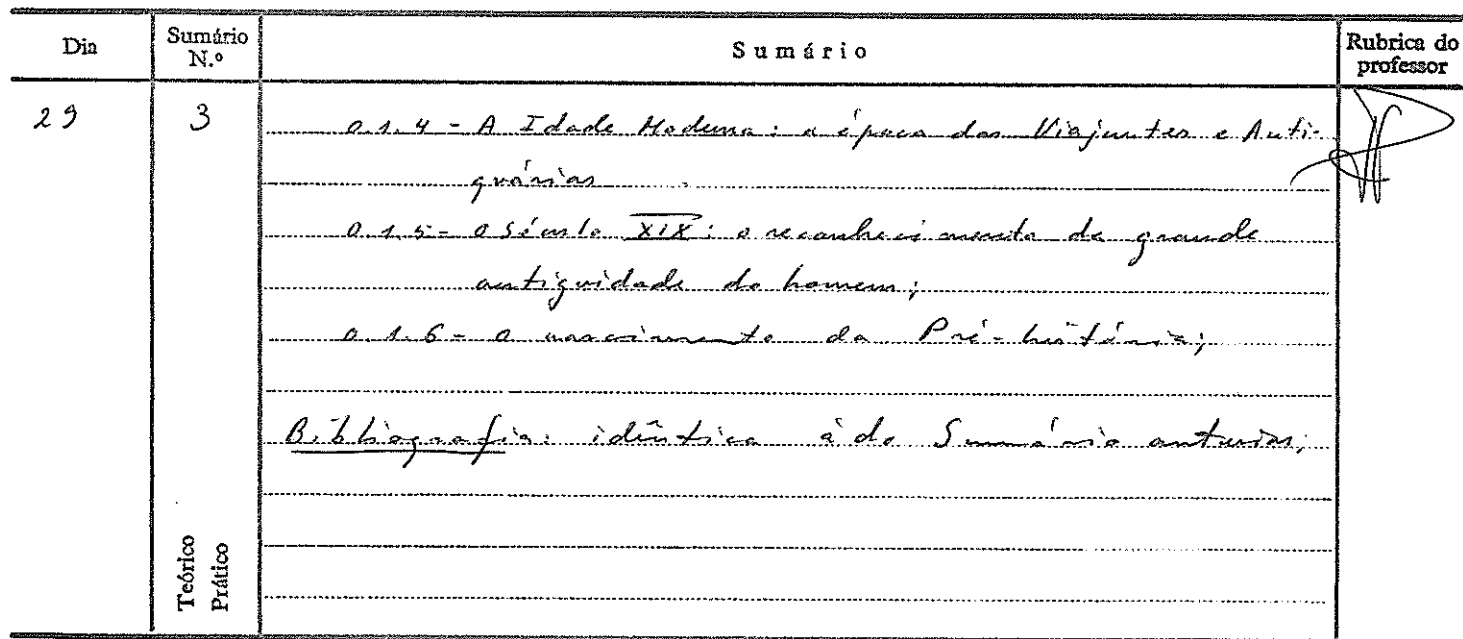 Dia
Sumário N.º
Sumário
Rubrica do professor
29
3
0.1.4 - A Idade Moderna: a época dos Viajantes e Anti-
quários
0.1.5 - O Século XIX: o reconhecimento da grande
antiguidade do homem;
0.1.6 - O nascimento da Pré-história;
Bibliografia: idêntica à do Sumário anterior;
Teórico
Prático